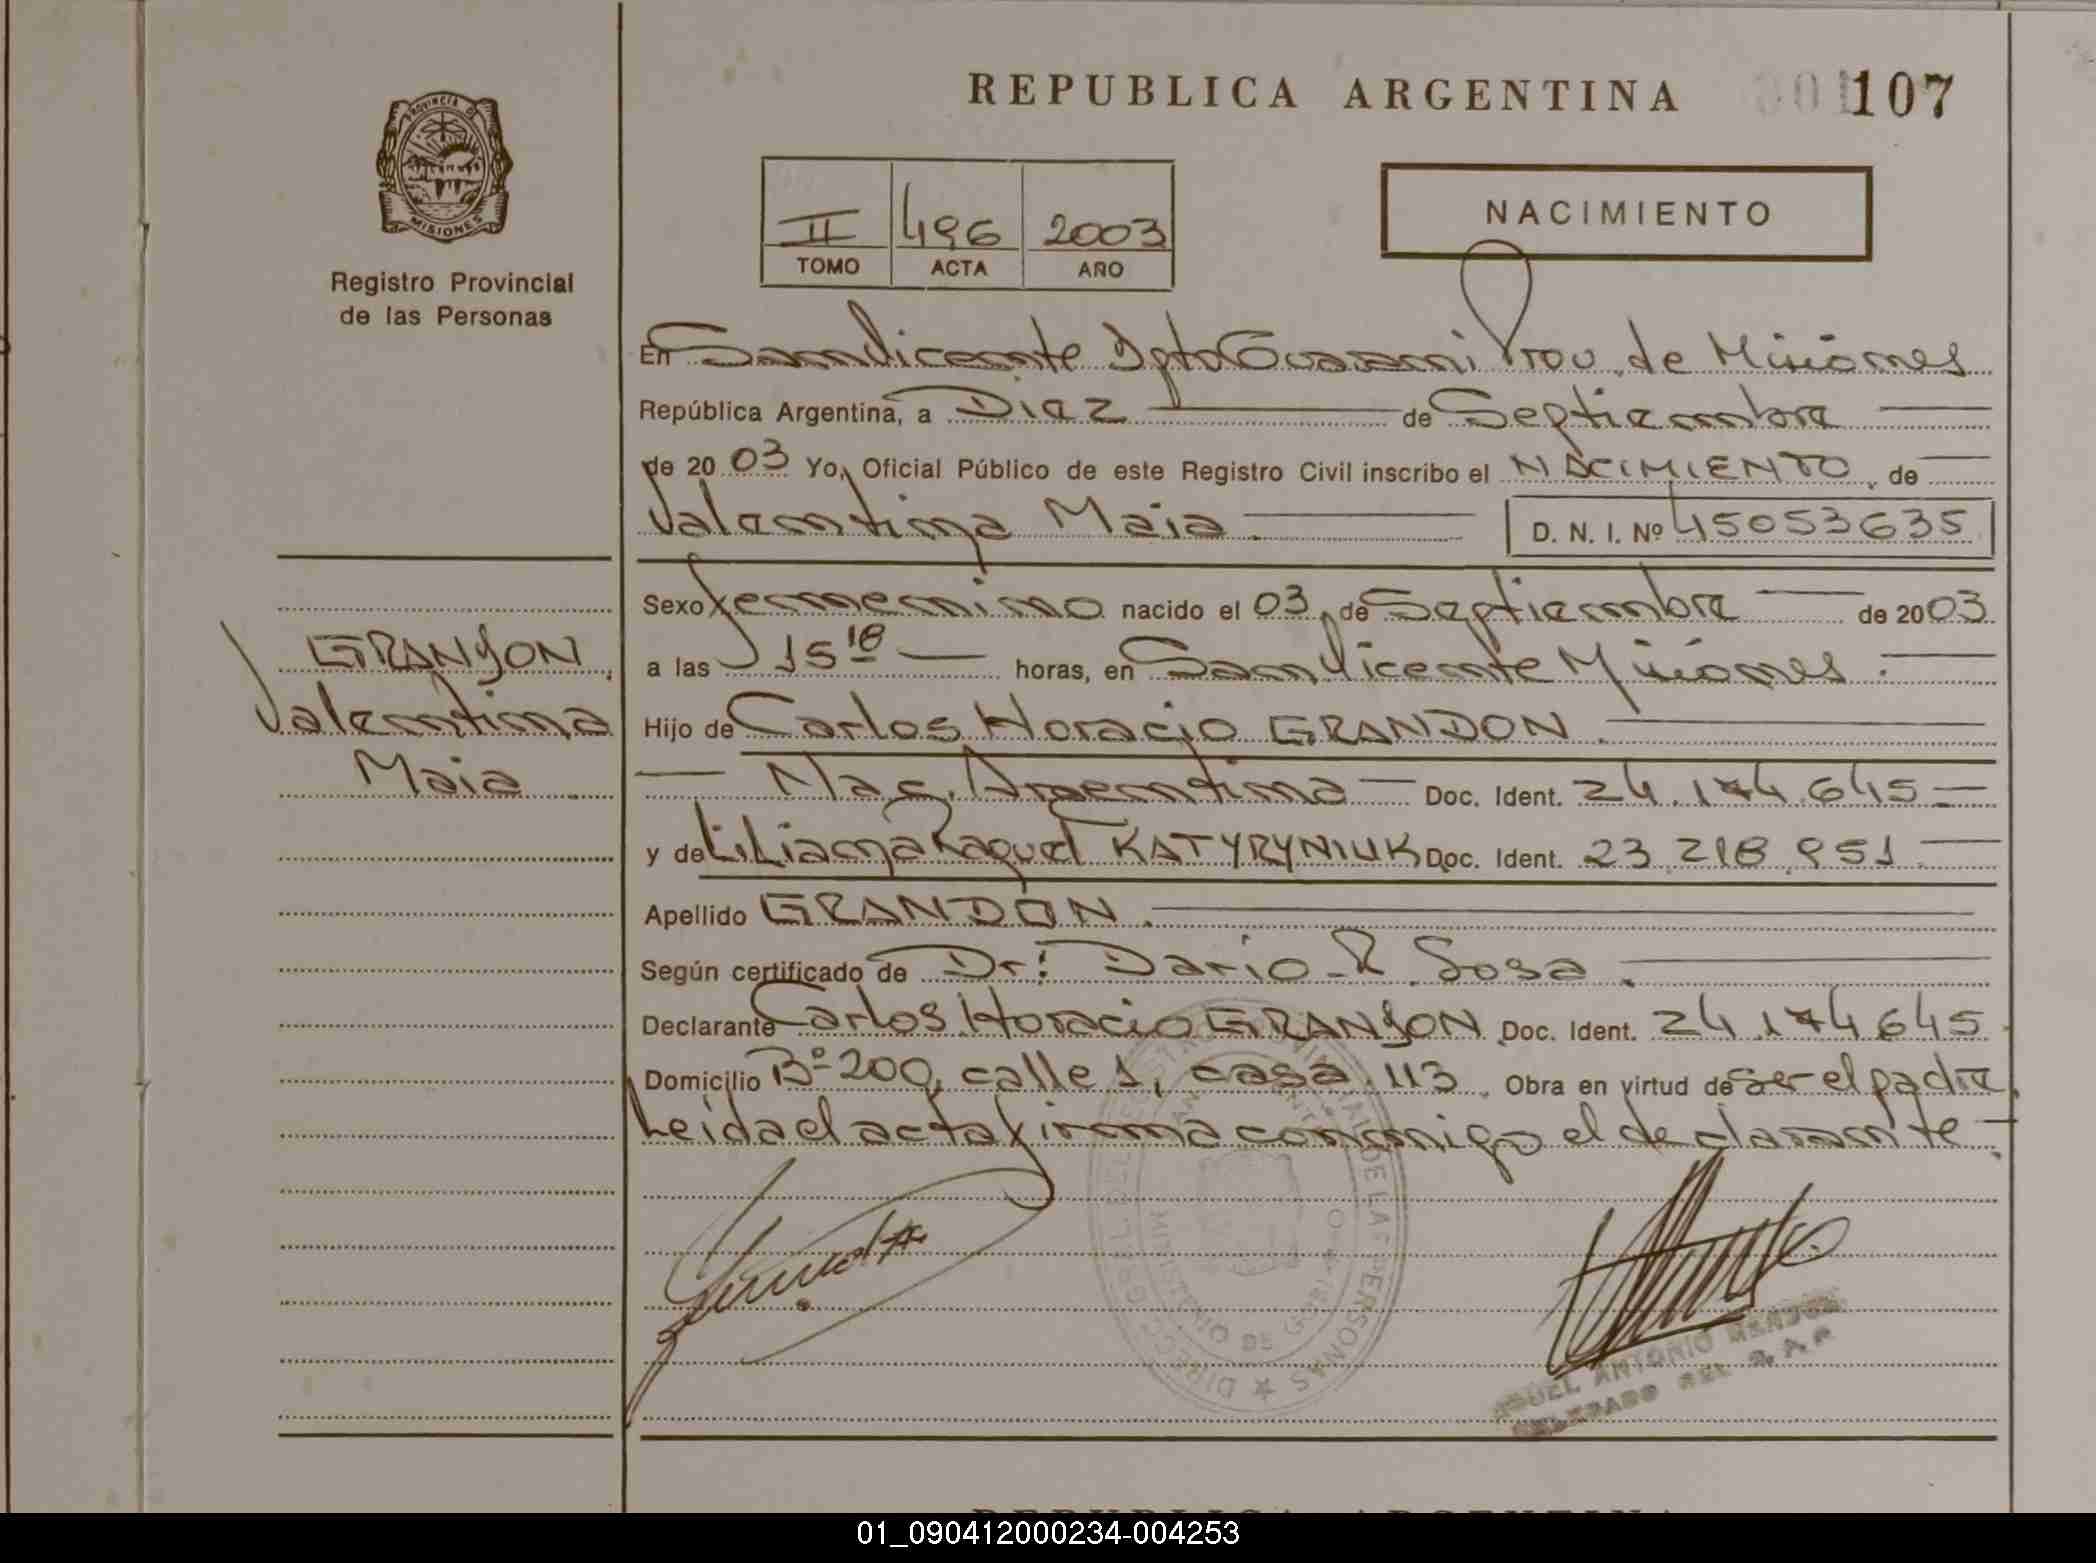 REPUBLICA ARGENTINA 107
PROVINCIA DE
MISIONES
Registro Provincial
de las Personas
II 496 2003
TOMO ACTA AÑO
NACIMIENTO
En San Vicente Dpto Guarani Prov. de Misiones
República Argentina, a Diez de Septiembre
de 20 03 Yo, Oficial Público de este Registro Civil inscribo el NACIMIENTO, de
Valentina Maia. D. N. I. Nº 45053635
Sexo Femenino nacido el 03, de Septiembre de 2003.
a las 15 18 horas, en San Vicente Misiones.
GRANDON,
Valentina
Maia
Hijo de Carlos Horacio GRANDON.
Nac. Argentina Doc. Ident. 24.174.645
y de Liliana Raquel KATYRYNIUK Doc. Ident. 23.218.951.
Apellido GRANDON.
Según certificado de Dr: Dario R. Sosa.
Declarante Carlos Horacio GRANDON Doc. Ident. 24.174.645
Domicilio Bº 200, calle 1, casa 113. Obra en virtud de ser el padre.
Leida el acta firma conmigo el declarante.
DE LAS PERSONAS
MINISTERIO DE GOBIERNO
ANTONIO
01_090412000234-004253